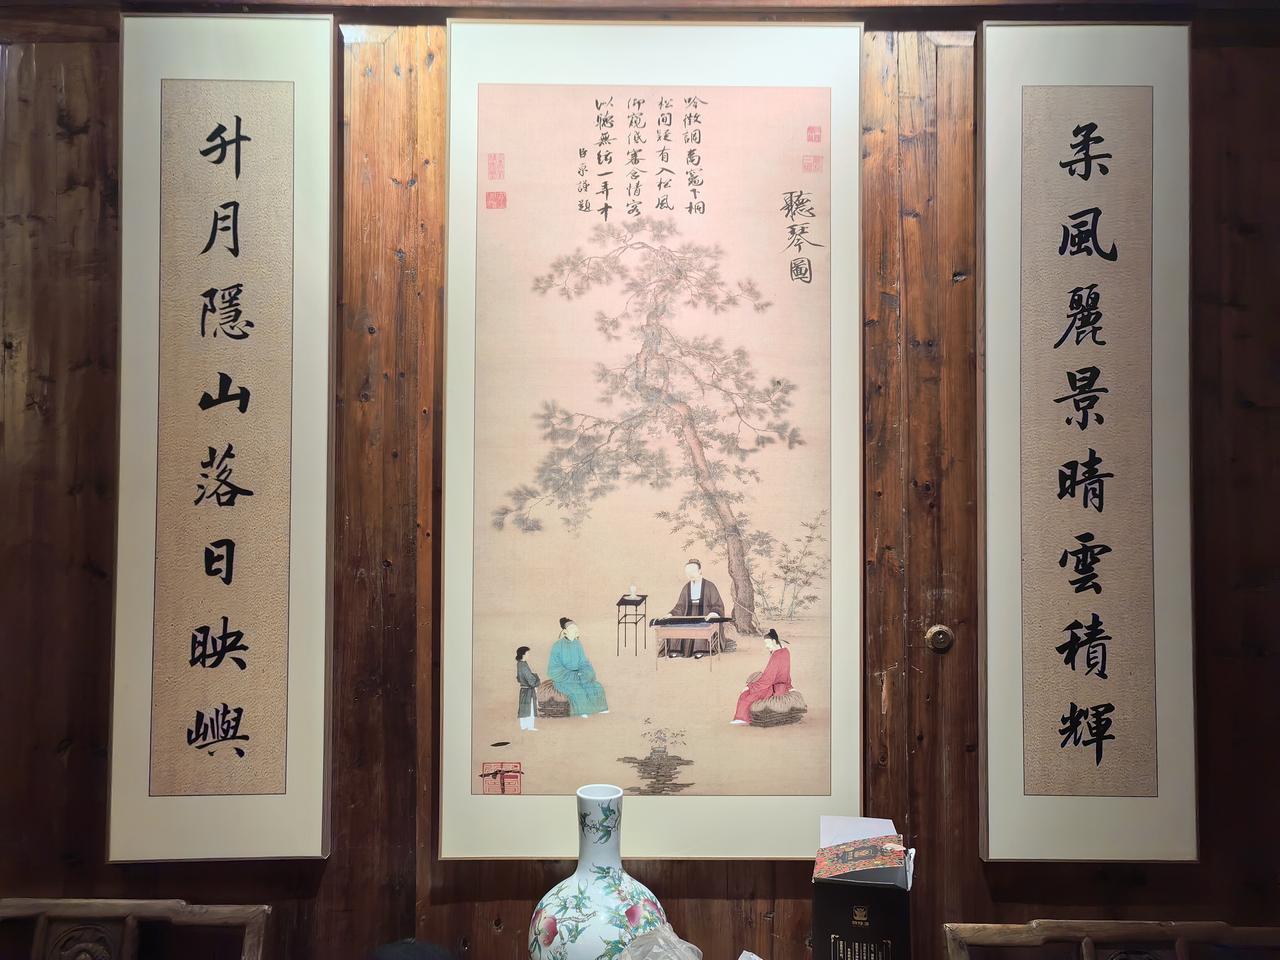 柔風麗景晴雲積輝
聽琴圖
吟徵調商竈下桐
松間疑有入松風
仰窺低審含情客
以聽無絃一弄中
臣京謹題
升月隱山落日映嶼